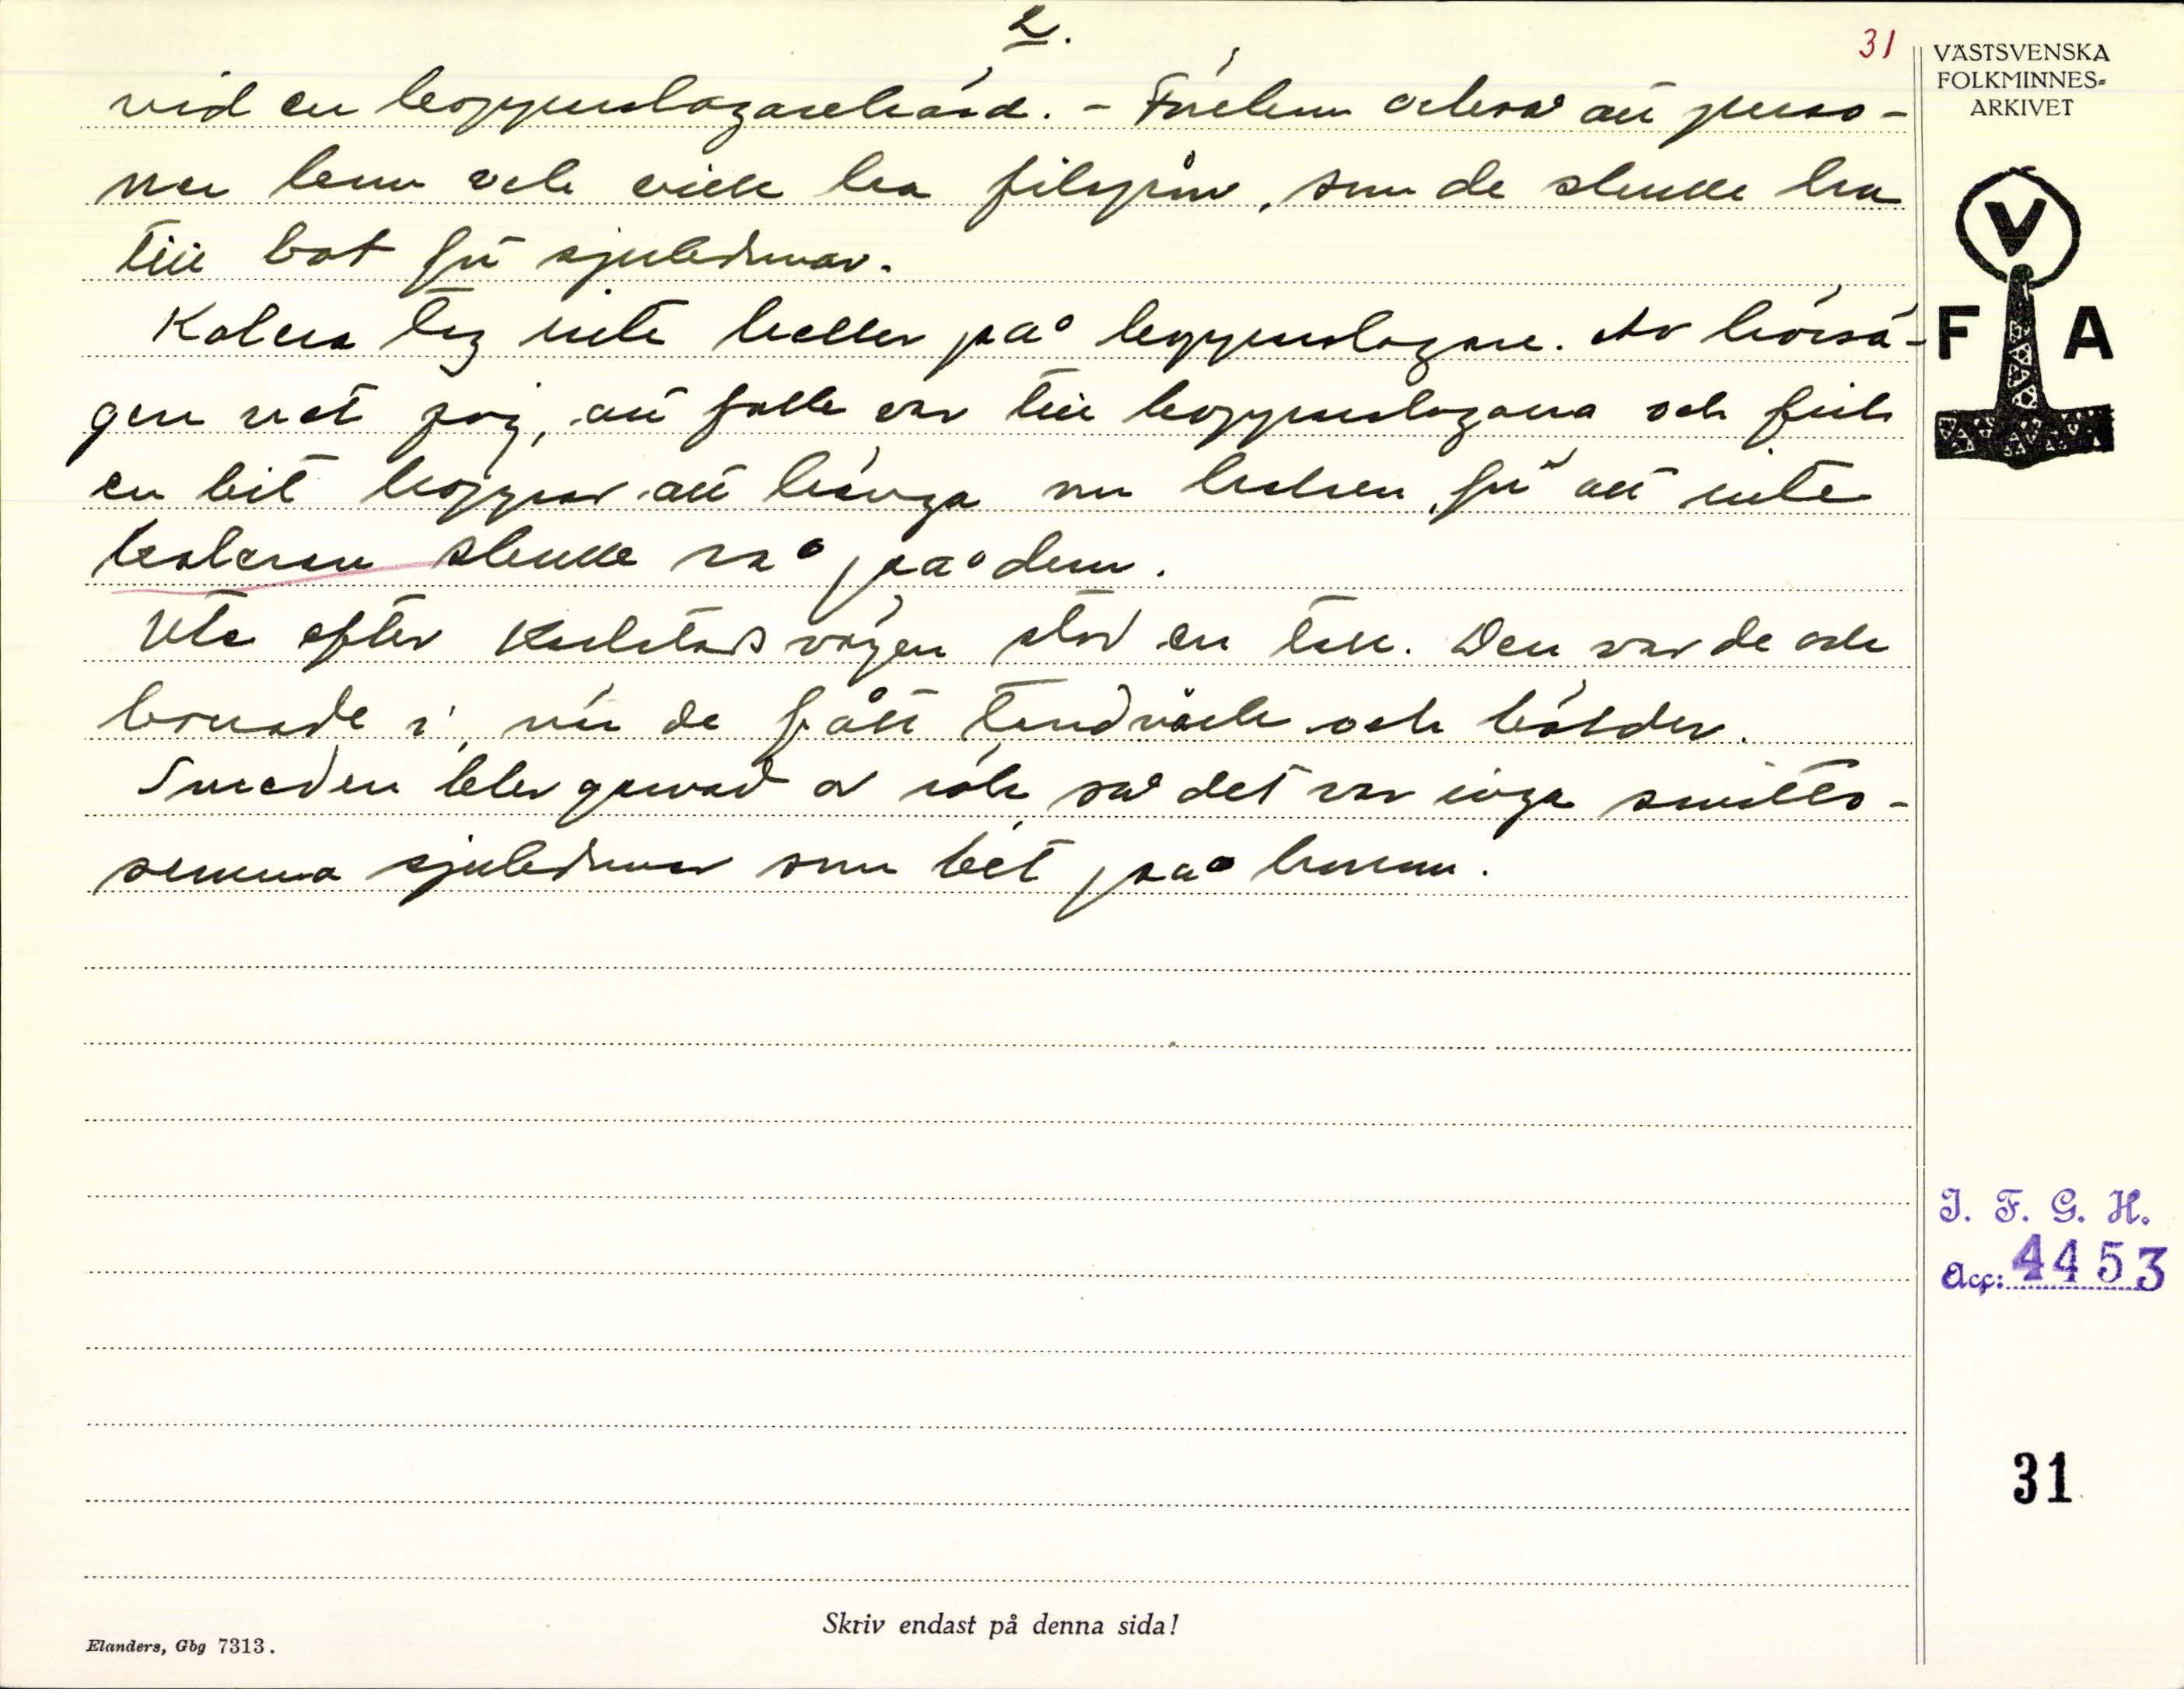 2.
31
vid en kopparslagarehärd. - Förekom också att perso-
ner kom och ville ha filspån, som de skulle ha
till bot för sjukdomar.
Kolera tog inte heller på kopparslagare. Av hörsä-
gen vet jag, att folk var till kopparslagarna och fick
en bit koppar att hänga om halsen, för att inte
koleran skulle rå på dem.
Ute efter Karlstadsvägen stod en tall. Den var de och
borrade i, när de fått tandvärk och bölder.
Smeden blev garvad av rök så det var inga smitto-
samma sjukdomar som bet på honom.
VÄSTSVENSKA
FOLKMINNES=
ARKIVET
V
F A
I. F. G. H.
Acc: 4453
31
Skriv endast på denna sida!
Elanders, Gbg 7313.